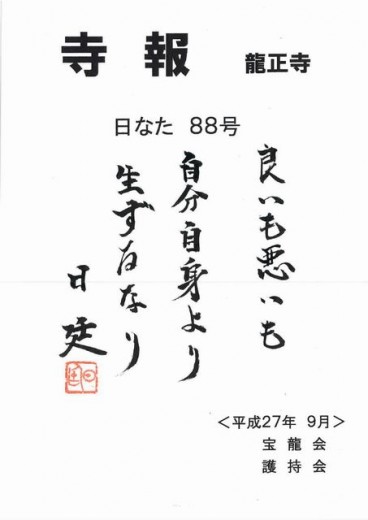 寺報 龍正寺
日なた 88号
良いも悪いも
自分自身より
生ずるなり
日廷
<平成27年 9月>
宝龍会
護持会